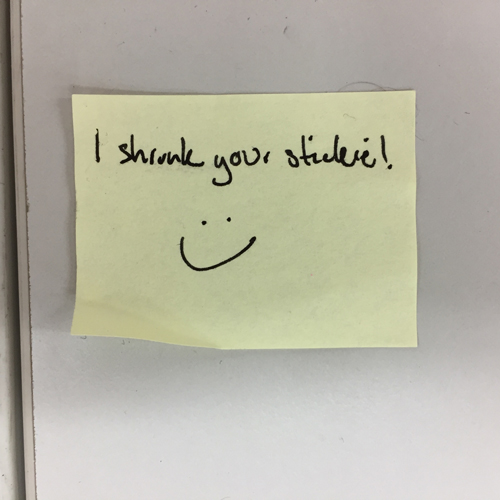 I shrunk your stickie!